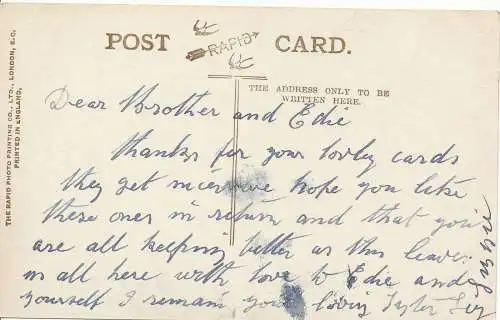 POST RAPID CARD.
THE ADDRESS ONLY TO BE
WRITTEN HERE.
THE RAPID PHOTO PRINTING CO., LTD., LONDON, E.C.
PRINTED IN ENGLAND,
Dear Brother and Edie
thanks for your lovley cards
they get nicer hope you like
these ones in return and that you
are all keeping better as this leaves
us all here with love to Edie and
yourself I remain your loving Sister
Lizzie